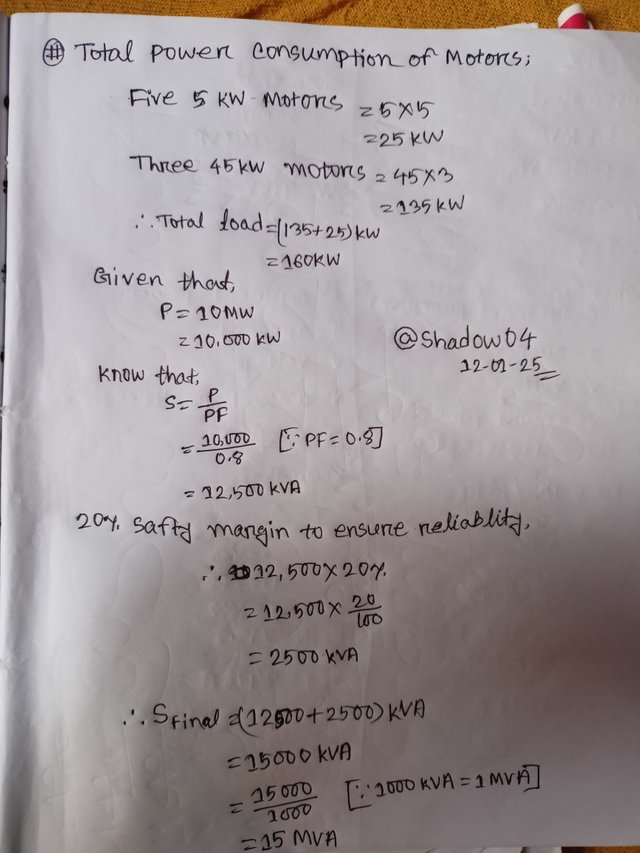 # Total Power Consumption of Motors;
Five 5 KW Motors = 5×5
= 25 KW
Three 45 KW motors = 45×3
= 135 KW
∴ Total load = (135+25) KW
= 160 KW
Given that,
P = 10 MW
= 10,000 KW
@Shadow04
12-01-25
Know that,
S = P/PF
= 10,000/0.8 [∵ PF = 0.8]
= 12,500 KVA
20% Safty margin to ensure reliablity,
∴ 12,500 × 20%
= 12,500 × 20/100
= 2500 KVA
∴ Sfinal = (12500 + 2500) KVA
= 15000 KVA
= 15000/1000 [∵ 1000 KVA = 1 MVA]
= 15 MVA